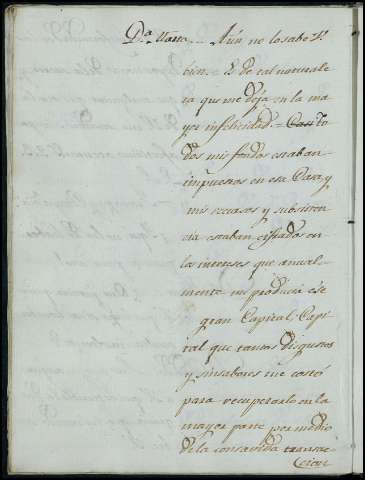 D.a Maria... Aún no lo sabe V.
bien. Es de tal naturale
za que me deja en la ma
yor infelicidad. = Casi To
dos mis fondos estaban
impuestos en esa Casa, y
mis recursos y subsisten
cia estaban cifrados en
los intereses que anual-
mente me producia ese
gran Capital, Capi
tal que tantos disgustos
y sinsabores me costó
para recuperarlo en la
mayor parte por medio
de la consavida transac
cion